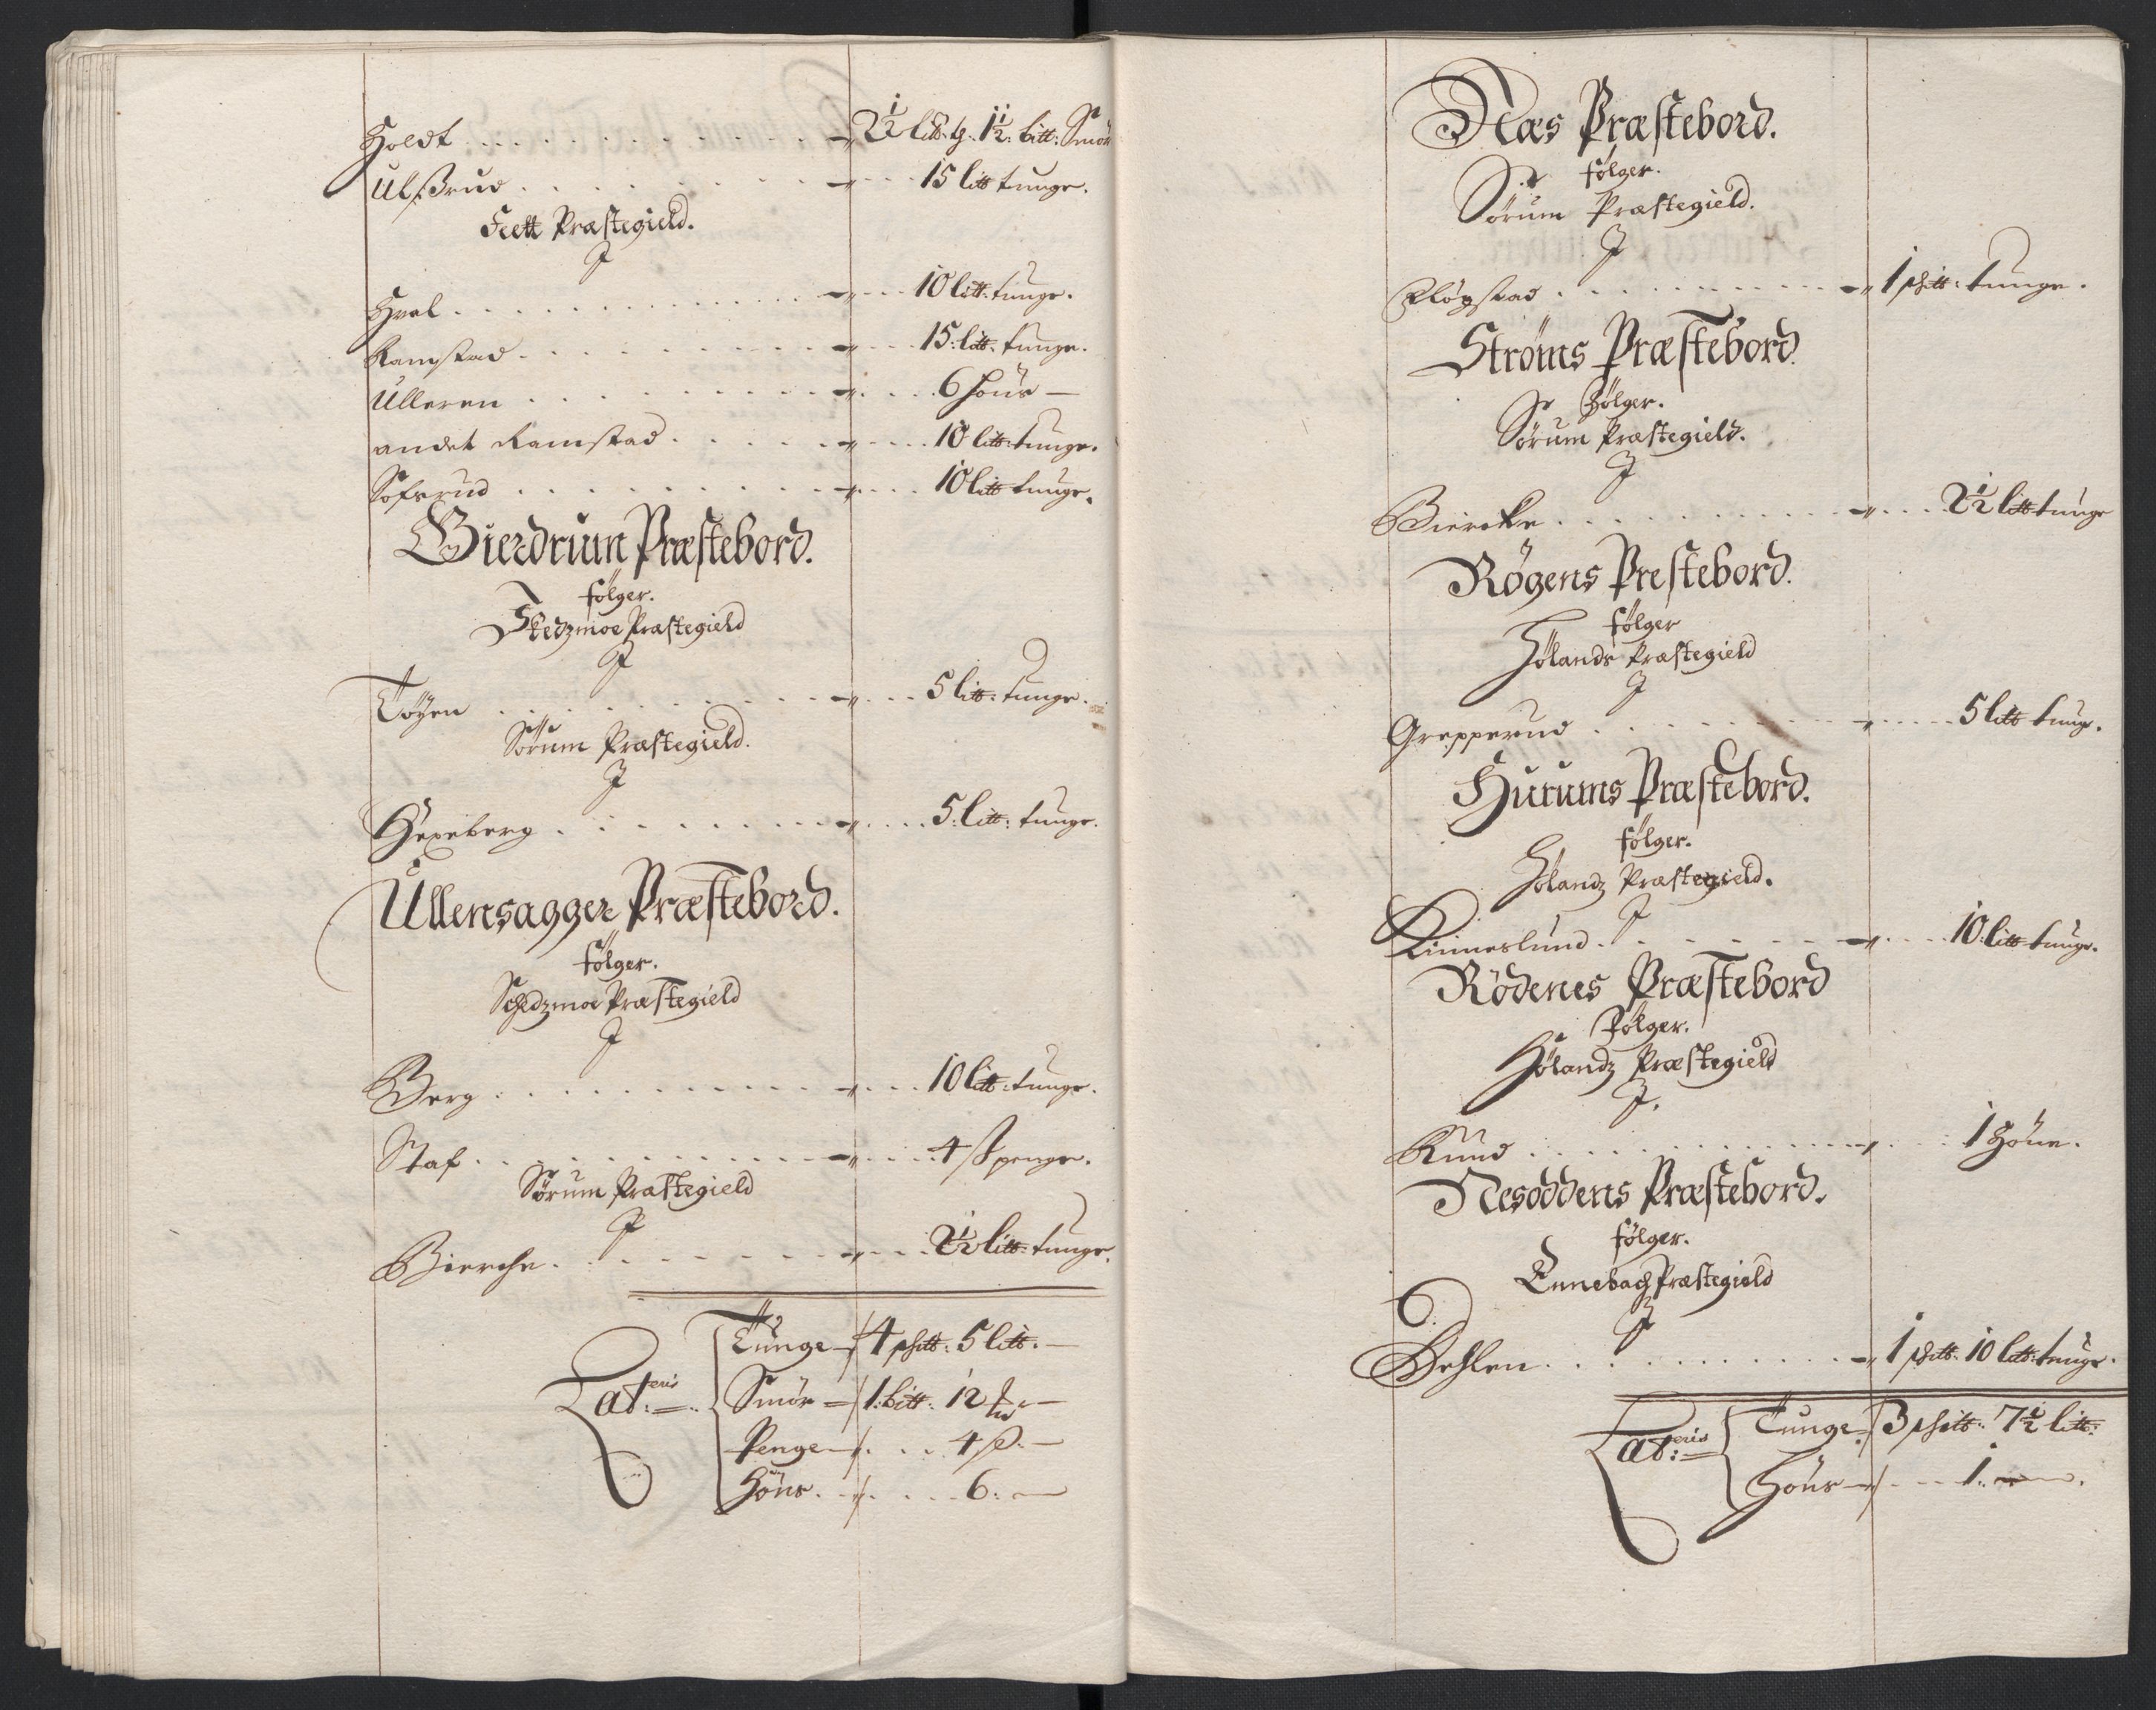 Holdt . . . . . . . . . . 2½ litt: tg. 1½: bitt: Smör
Ulsrud . . . . . . . . . . 15 litt tunge.
Feett Præstegield.
J
Hval . . . . . . . . . . 10 litt: tunge.
Ramstad . . . . . . . . . . 15: litt: tunge.
Ulleren . . . . . . . . . . 6 Höns —
andet Ramstad . . . . . . . . . . 10 litt: tunge.
Sofrud . . . . . . . . . . 10 litt tunge.
Gierdrum Præstebord.
følger.
Skedzmoe Præstegield
J
Töyen . . . . . . . . . . 5 litt: tunge.
Sörum Præstegield.
J
Hexeberg . . . . . . . . . . 5: litt: tunge.
Ullensagger Præstebord.
følger.
Schedzmoe Præstegield
J
Berg . . . . . . . . . . 10 litt: tunge.
Staf . . . . . . . . . . 4 ß penge.
Sørum Præstegield
J
Bierche . . . . . . . . . . 2½ litt: tunge.
Lat:eris
Tunge 4 phitt: 5 litt. —
Smör 1: bitt: 12
Penge . . 4 ß. —
Höns . . . . 6: —
Næs Præstebord.
følger.
Sörum Præstegield.
J
Fløgstad . . . . . . . . . . 1 phitt: tunge.
Strøms Præstebord.
følger.
Sörum Præstegield.
J
Biercke . . . . . . . . . . 2½ litt tunge
Røgens Prestebord.
følger
Hölands Præstegield
J
Grepperud . . . . . . . . . . 5 litt tung.
Hurums Præstebord.
følger.
Hölandz Præstegield.
J
Kinneslund . . . . . . . . . . 10: litt tunge.
Rødenes Præstebord
følger.
Hølandz Præstegield
J.
Rund . . . . . . . . . . 1 Höne.
Nesoddens Præstebord.
følger.
Ennebach Præstegield
J
Dehlen . . . . . . . . . . 1 phitt. 10 litt: tunge.
Lat:eris
Tunge 3 phitt: 7½ litt:
Höns . . . 1: —